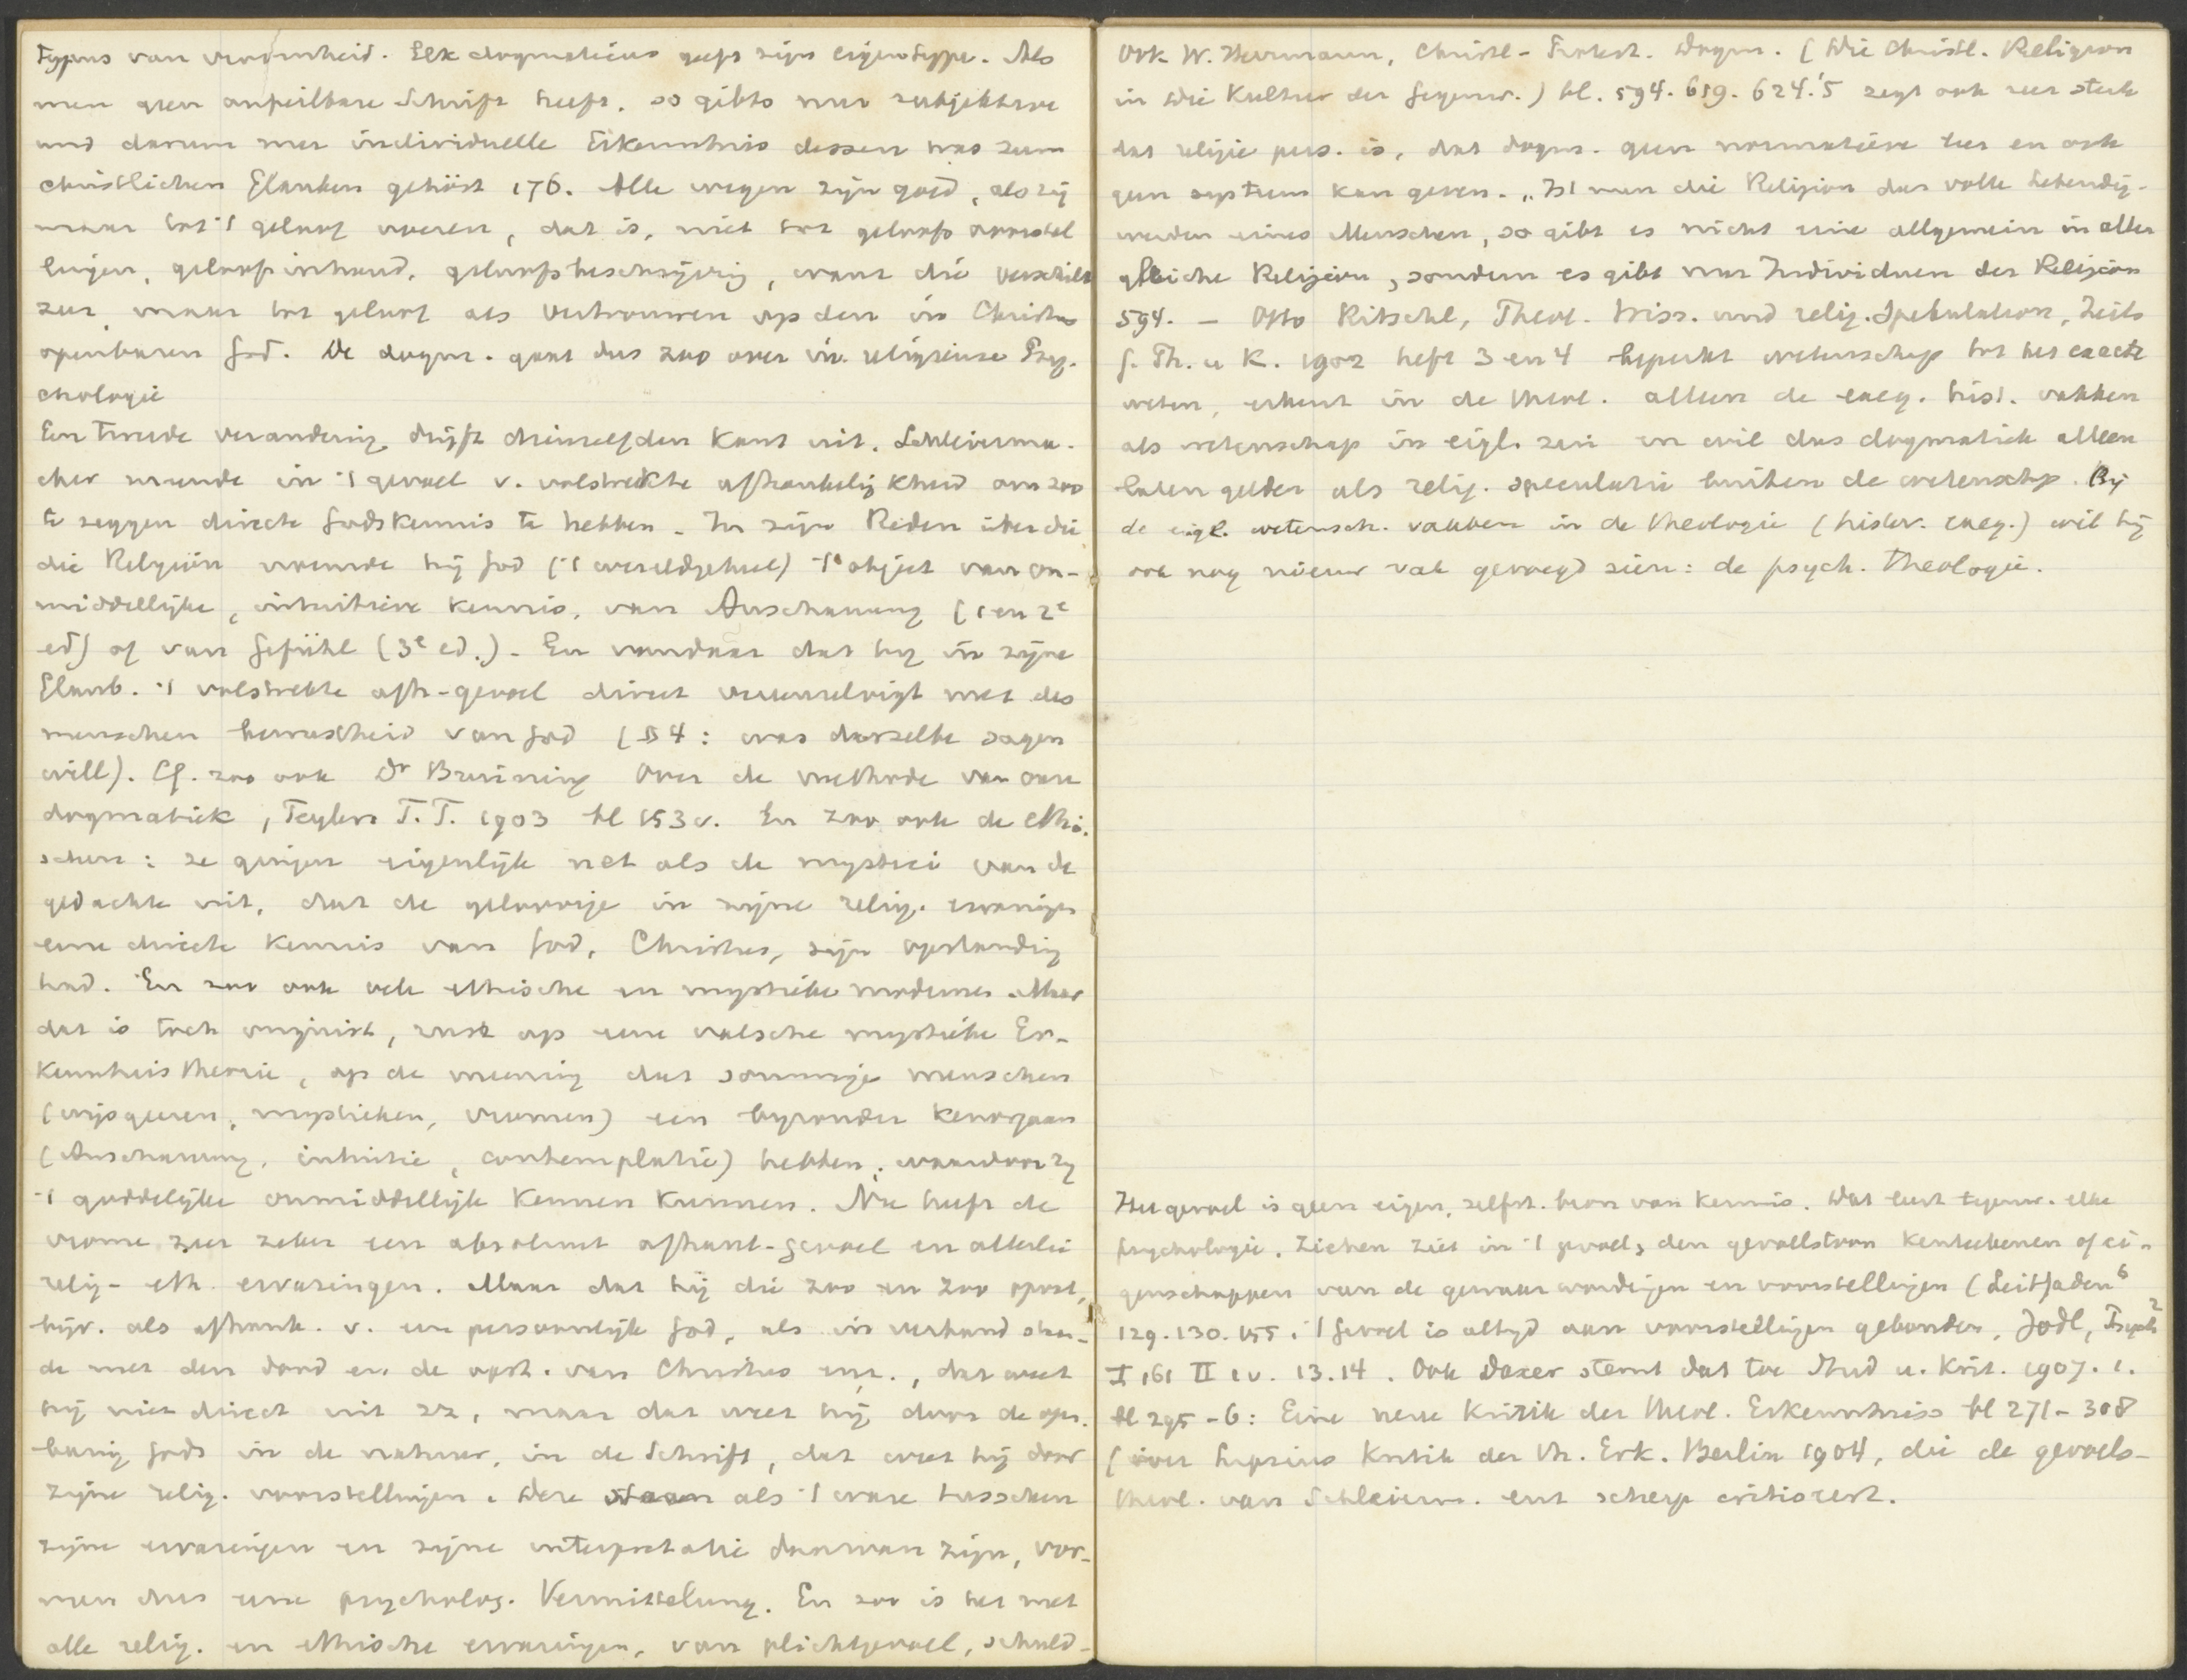 Typus van vroomheid. Elk dogmaticus geeft zijn eigen type. Als
men geen onfeilbare Schrift heeft, so gibts nur subjektive
und darum nur individuelle Erkenntnis dessen was zum
christlichen Glauben gehört 176. Alle wegen zijn goed, als zij
maar tot 't geloof voeren, dat is, niet tot geloofsvoorstel
lingen, geloofsinhoud, geloofsbeschrijving, want die verschilt
zeer, maar tot geloof als vertrouwen op den in Christus
openbaren God. De dogm. gaat dus zoo over in religieuse Psy-
chologie
Een tweede verandering drijft dienzelfden kant uit. Schleierma-
cher meende in 't gevoel v. volstrekte afhankelijkheid om zoo
te zeggen directe Godskennis te hebben. In zijn Reden über die
die Religion noemde hij God ('t wereldgeheel) 't object van on-
middellijke, intuitieve kennis, van Anschauung (1 en 2e
ed) of van Gefühl (3e ed.). En vandaar dat hij in zijne
Glaub. 't volstrekte afh-gevoel direct vereenzelvigt met des
menschen bewustheid van God (§ 4: was dasselbe sagen
will). Cf. zoo ook Dr Bruining Over de methode van onze
dogmatiek, Teylers T.T. 1903 bl 153 v. En zoo ook de ethi-
schen: ze gingen eigenlijk net als de mystici van de
gedachte uit, dat de geloovige in zijne relig. ervaringen
eene directe kennis van God, Christus, zijn opstanding
had. En zoo ook vele ethische en mystieke modernen. Maar
dat is toch onjuist, rust op eene valsche mystieke Er-
kenntnistheorie, op de meening dat sommige menschen
(wijsgeeren, mystieken, vromen) een byzonder kenorgaan
(Anschauung, intuitie, contemplatie) hebben, waardoor zy
't goddelijke onmiddellijk kennen kunnen. Nu heeft de
vrome zeer zeker een absoluut afhank-gevoel en allerlei
relig-eth. ervaringen. Maar dat hij die zoo en zoo opvat,
bijv. als afhank. v. een persoonlijk God, als in verband staan-
de met den dood en de opst. van Christus enz., dat weet
hij niet direct uit zz, maar dat weet hij door de open-
baring Gods in de natuur, in de Schrift, dat weet hij door
zijne relig. voorstellingen. Deze staan als 't ware tusschen
zijne ervaringen en zijne interpretatie daarvan zijn, vor-
men dus eene psycholog. Vermittelung. En zoo is het met
alle relig. en ethische ervaringen, van plichtgevoel, schuld-
Ook W. Herrmann, Christl-Protest. Dogm. (Die Christl. Religion
in Die Kultur der Gegenw.) bl. 594. 619. 624.'5 zegt ook zeer sterk
dat religie pers. is, dat dogm. geen normatieve leer en ook
geen systeem kan geven. „Ist nun die Religion das volle Lebendig-
werden eines Menschen, so gibt es nicht eine allgemein in allen
gleiche Religion, sondern es gibt nur Individuen der Religion
594. — Otto Ritschl, Theol. Wiss. und relig. Spekulation, Zeits
f. Th. u K. 1902 heft 3 en 4 beperkt wetenschap tot het exacte
weten, erkent in de theol. alleen de exeg. hist. vakken
als wetenschap in eigl. zin en wil das dogmatiek alleen
laten gelden als relig. speculatie buiten de wetenschap. Bij
de eigl. wetensch. vakken in de theologie (histor. exeg.) wil hij
ook nog nieuw vak gevoegd zien: de psych. Theologie.
Het gevoel is geen eigen, zelfst. bron van kennis. Dat leert tegenw. elke
psychologie. Ziehen ziet in 't gevoel, den gevoelstoon kenteekenen of ei-
genschappen van de gewaarwordingen en voorstellingen (Leitfaden6
129. 130. 155: 't Gevoel is altyd aan voorstellingen gebonden, Jodl, Psych2
I 161 II 1 v. 13. 14. Ook Daxer stemt dat toe Stud u. Krit. 1907. 1.
bl 295-6: Eine neue Kritik der theol. Erkenntniss bl 271-308
(over Lepsius Kritik der th. Erk. Berlin 1904, die de gevoels-
theol. van Schleierm. enz scherp critiseert.